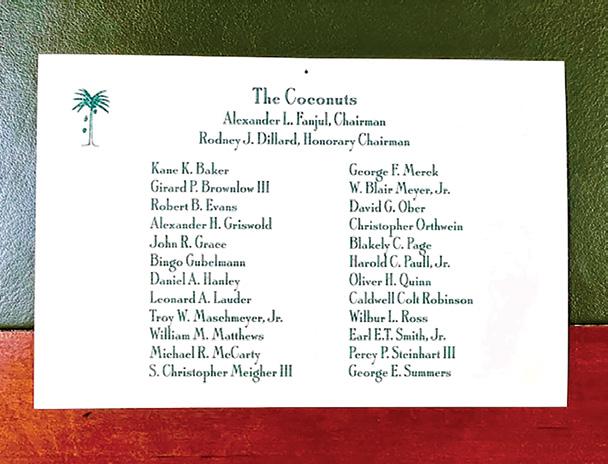 The Coconuts
Alexander L. Fanjul, Chairman
Rodney J. Dillard, Honorary Chairman
Kane K. Baker
Girard P. Brownlow III
Robert B. Evans
Alexander H. Griswold
John R. Grace
Bingo Gubelmann
Daniel A. Hanley
Leonard A. Lauder
Troy W. Maschmeyer, Jr.
William M. Matthews
Michael R. McCarty
S. Christopher Meigher III
George F. Merck
W. Blair Meyer, Jr.
David G. Ober
Christopher Orthwein
Blakely C. Page
Harold C. Paull, Jr.
Oliver H. Quinn
Caldwell Colt Robinson
Wilbur L. Ross
Earl E.T. Smith, Jr.
Percy P. Steinhart III
George E. Summers